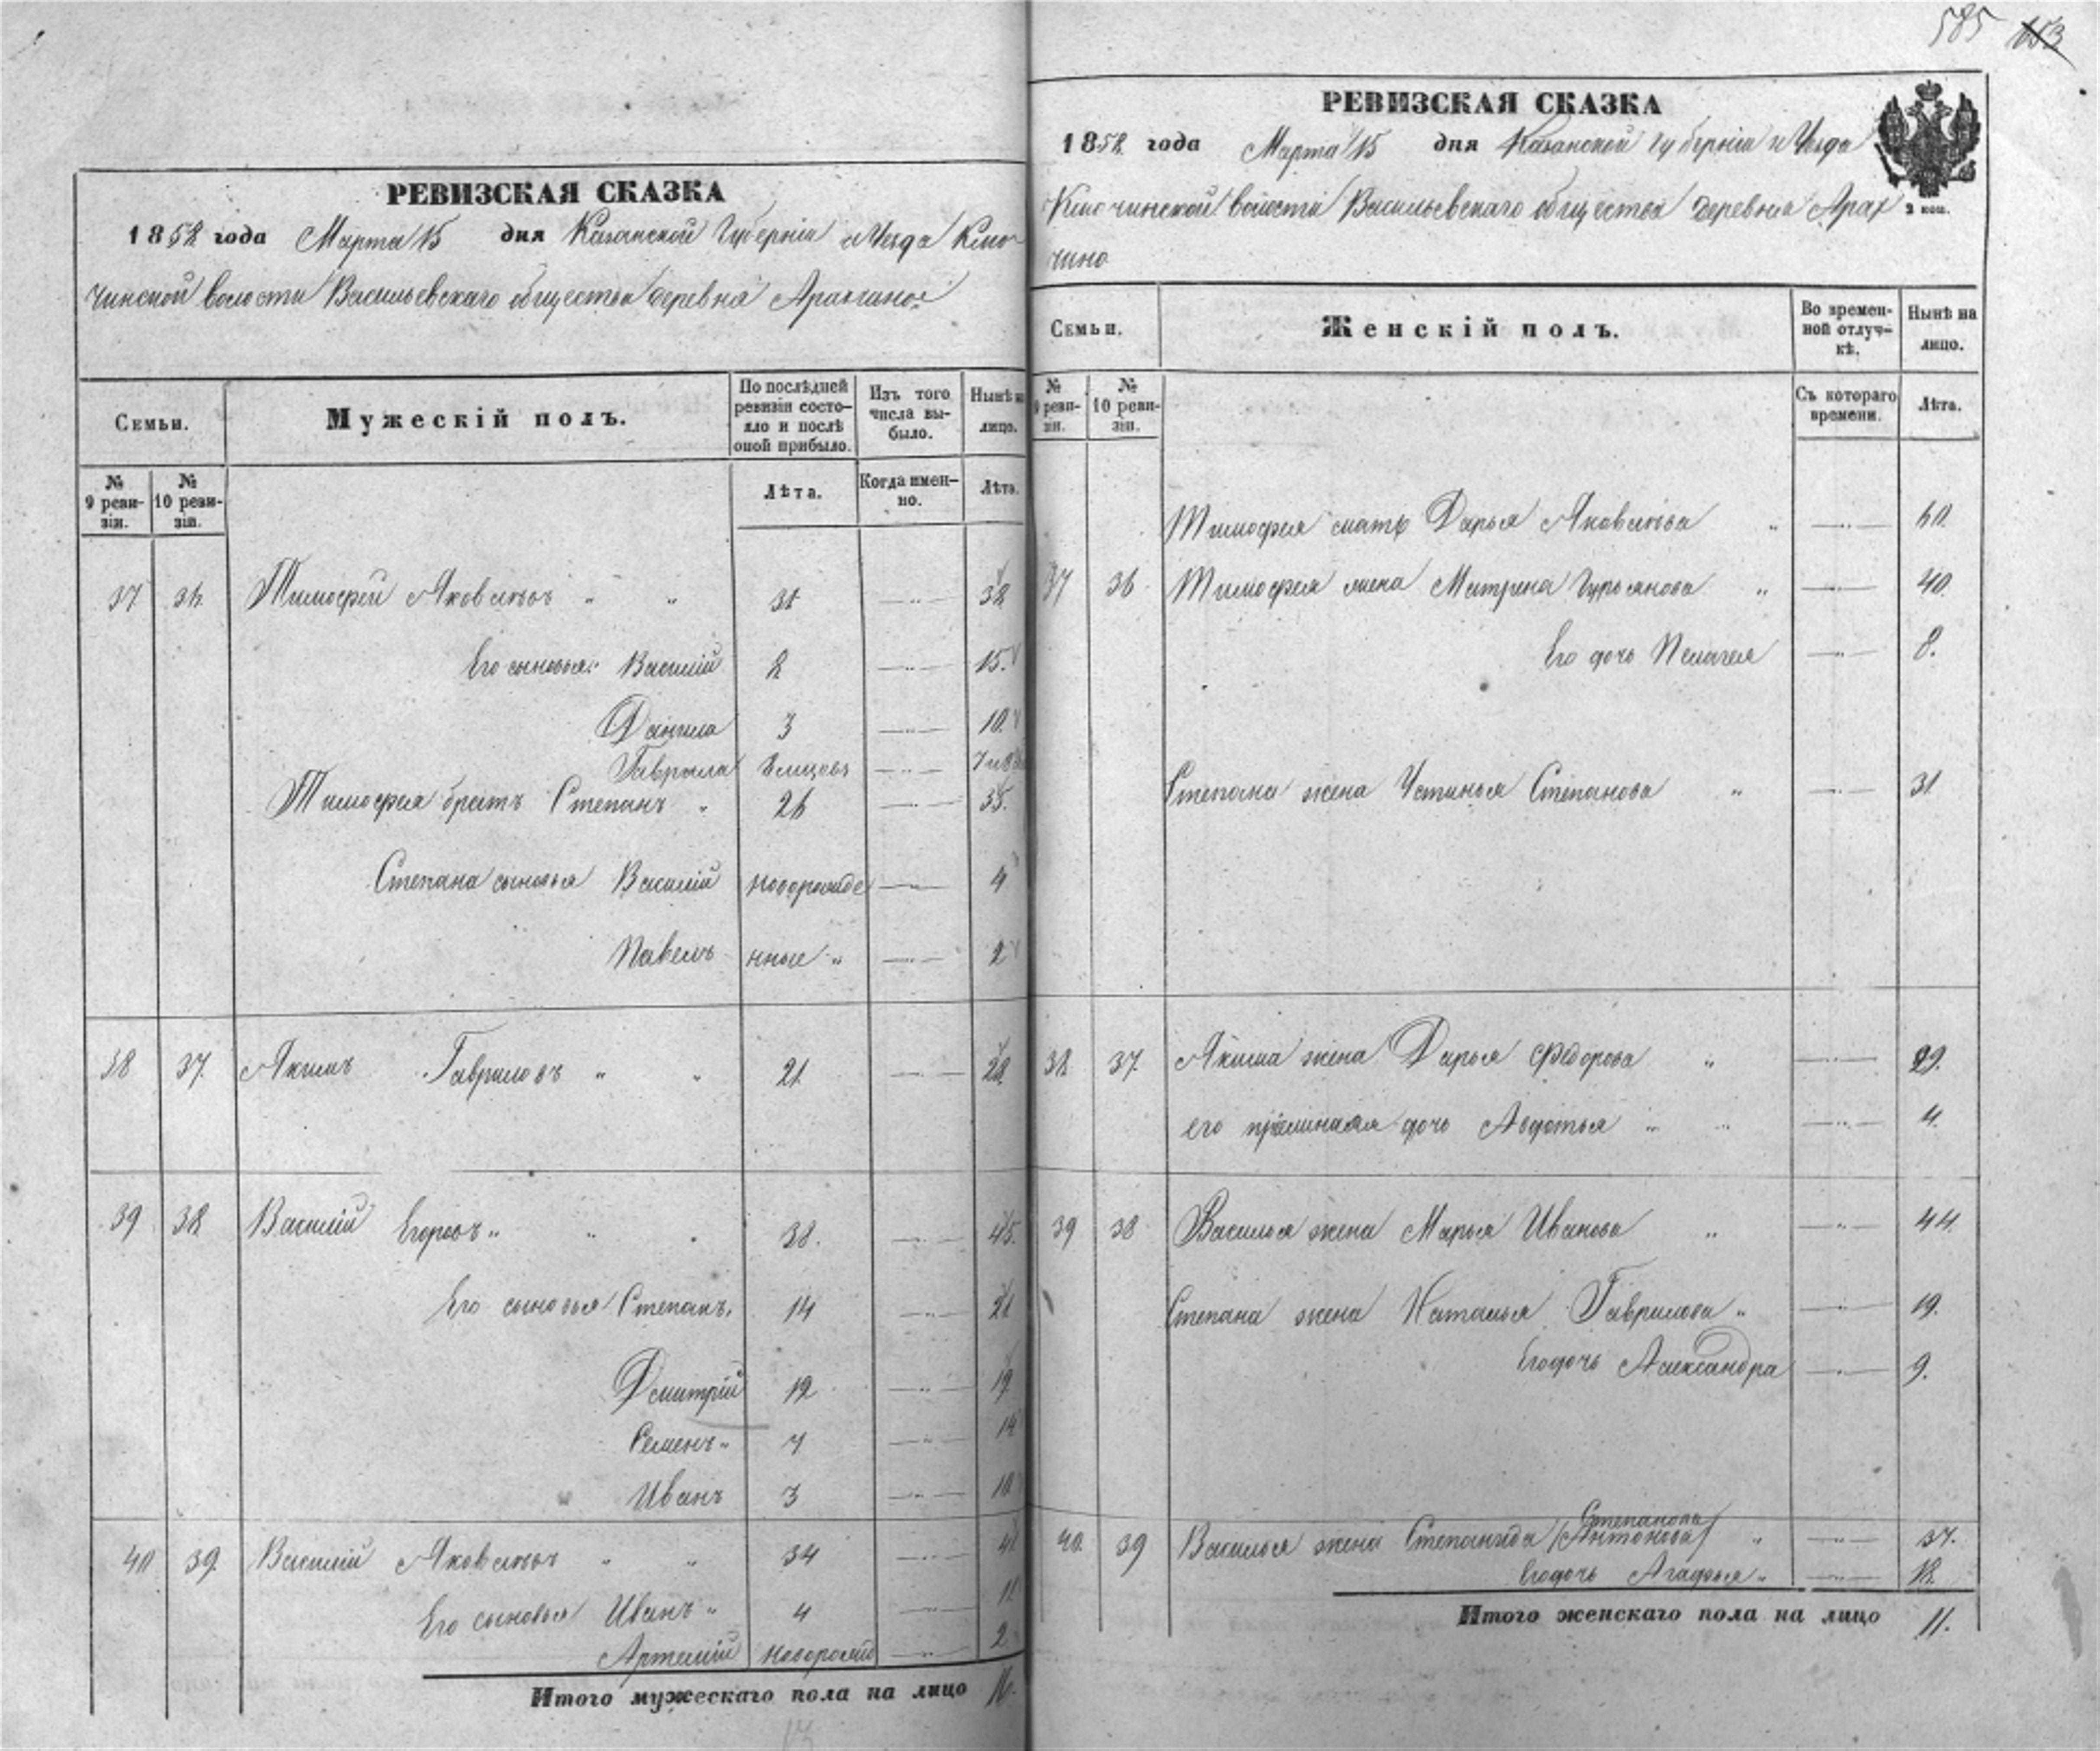 РЕВИЗСКАЯ СКАЗКА
1858 года Марта 15 дня Казанской Губерніи и Уезда Клю-
чинской волости Васильевскаго общества деревня Аракчино
Семьи.
Мужескій полъ.
По послѣдней ревизіи состо-
яло и послѣ
оной прибыло.
Изъ того
числа вы-
было.
Нынѣ на
лицо.
№
9 реви-
зіи.
№
10 реви-
зіи.
Лѣта.
Когда имен-
но.
Лѣта.
37 36 Тимофей Яковлевъ 31 32
Его сыновья: Василій 2 15.
Данила 3 10.
Гаврила
Тимофея братъ Степанъ 26 35.
Степана сыновья Василій новорожде 4
Павелъ нные 2
38 37. Якимъ Гавриловъ 21. 28.
39 38. Василій Егоровъ 38. 45.
Его сыновья Степанъ 14 21
Дмитрій 12 19.
Семенъ 7 14
Иванъ 3 10
40 39. Василій Яковлевъ 34 41
Его сыновья Иванъ 4 11
Артемій новорожд 2
Итого мужескаго пола на лицо 16.
585 153
РЕВИЗСКАЯ СКАЗКА
1858 года Марта 15 дня Казанской губерніи и Уезда
Ключинской волости Васильевскаго общества деревня Арак
чино
2 коп.
Семьи.
Женскій полъ.
Во времен-
ной отлуч-
кѣ.
Нынѣ на
лицо.
№
9 реви-
зіи.
№
10 реви-
зіи.
Съ котораго
времени.
Лѣта.
Тимофея мать Дарья Яковлева 60.
37 36 Тимофея жена Матрена Гурьянова 40.
Его дочь Пелагея 8.
Степана жена Устинья Степанова 31
38 37. Якима жена Дарья Федорова 29.
его пріемная дочь Авдотья 4.
39 38 Василья жена Марья Иванова 44.
Степана жена Наталья Гаврилова 19.
Его дочь Александра 9.
Степанова
40. 39 Василья жена Степанида /Антонова/ 37.
Его дочь Агафья 12.
Итого женскаго пола на лицо 11.